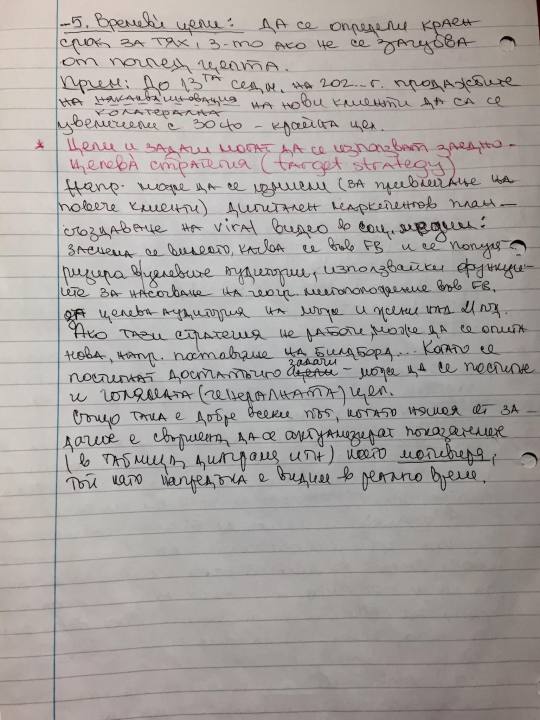 5. Времеви цели: Да се определи краен
срок за тях, з-то ако не се загубва
от поглед целта.
Пример: До 13та седм. на 202... г. продажбите
на някаква иновация на нови клиенти да са се
колатерална
увеличили с 30% - крайна цел.
* Цели и задачи могат да се използват заедно -
целева стратегия (target strategy)
Напр. може да се измисли (за привличане на
повече клиенти) дигитален маркетингов план -
създаване на viral видео в соц. медии:
заснема се видеото, качва се във FB и се популя-
ризира в целевите аудитории, използвайки функци-
ите за насочване на геогр. местоположение във FB.
целева аудитория на мъже и жени над 21 год.
Ако тази стратегия не работи, може да се опита
нова, напр. поставяне на билборд... Когато се
постигнат достатъчно цели - може да се постигне
задачи
и голямата (генералната) цел.
Също така е добре всеки път, когато някоя от за-
дачите е свършена да се актуализират показателите
(в таблица, диаграма и тн) което мотивира,
той като напредъка е видим в реално време.